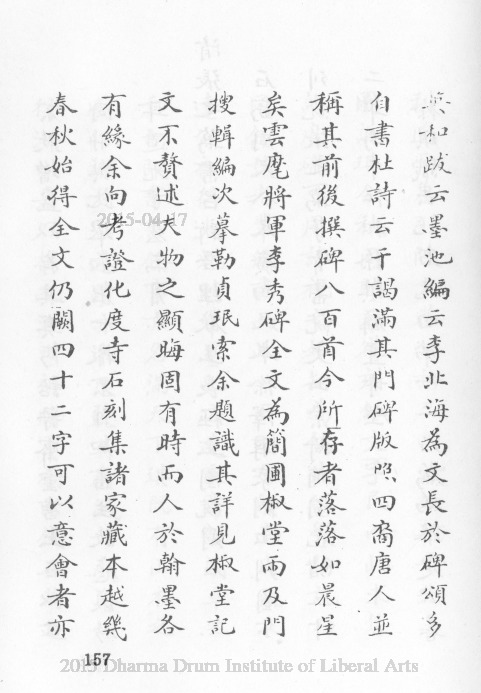 英和跋云墨池編云李北海為文長於碑頌多
自書杜詩云干謁滿其門碑版照四裔唐人並
稱其前後撰碑八百首今所存者落落如晨星
矣雲麾將軍李秀碑全文為簡圃椒堂兩及門
搜輯編次摹勒貞珉索余題識其詳見椒堂記
文不贅述夫物之顯晦固有時而人於翰墨各
有緣余向考證化度寺石刻集諸家藏本越幾
春秋始得全文仍闕四十二字可以意會者亦
2015-04-17
157
2015 Dharma Drum Institute of Liberal Arts